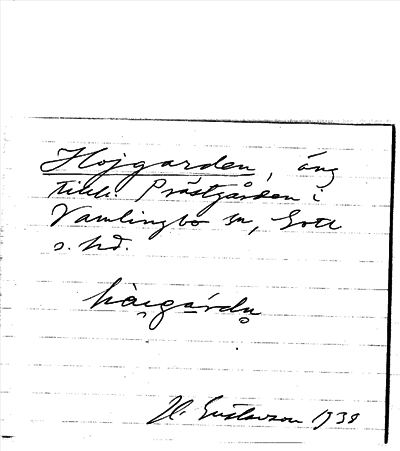 Hojgarden, äng
tillh. Prästgården i
Vamlingbo sn, Gotl
s. hd.
hài̯gárdn̥
H. Gustavson 1938